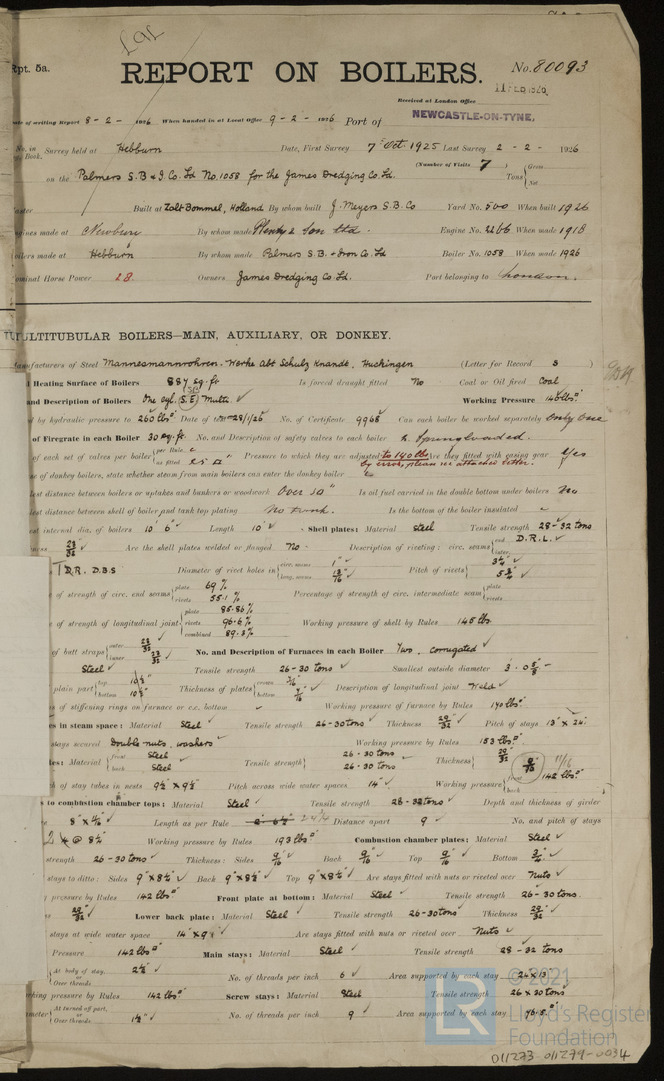 Rpt. 5a.
REPORT ON BOILERS.
No. 80093
Received at London Office
NEWCASTLE-ON-TYNE.
Date of writing Report 8-2-1926 When handed in at Local Office 9-2-1926 Port of
No. in Survey held at Hebburn Date, First Survey 7th Oct. 1925 Last Survey 2-2-1926
(Number of Visits 7) Gross
Tons Net
on the Palmers S.B & I. Co. Ld No. 1058 for the James Dredging Co. Ld.
Built at Zalt-Bommel, Holland By whom built J. Meyers S.B. Co Yard No. 500 When built 1926
Engines made at Newbury By whom made Plenty & Son Ltd. Engine No. 2266 When made 1918
Boilers made at Hebburn By whom made Palmers S.B. & Iron Co. Ld Boiler No. 1058 When made 1926
Nominal Horse Power 28. Owners James Dredging Co. Ld. Port belonging to London.
MULTITUBULAR BOILERS—MAIN, AUXILIARY, OR DONKEY.
Manufacturers of Steel Mannesmannrohren-Werke Abt Schulz Knaudt, Huckingen (Letter for Record S)
Heating Surface of Boilers 887 sq. ft Is forced draught fitted No Coal or Oil fired Coal
and Description of Boilers One cyl. (S.E) Multi. Working Pressure 140 lbs
by hydraulic pressure to 260 lbs Date of test 29/1/26 No. of Certificate 9968 Can each boiler be worked separately Only one
of Firegrate in each Boiler 30 sq. ft No. and Description of safety valves to each boiler 2. Spring loaded.
of each set of valves per boiler per Rule
as fitted Pressure to which they are adjusted to 140 lbs Are they fitted with easing gear Yes
by error, please see attached letter.
of donkey boilers, state whether steam from main boilers can enter the donkey boiler
distance between boilers or uptakes and bunkers or woodwork Over 10" Is oil fuel carried in the double bottom under boilers No
distance between shell of boiler and tank top plating No tank. Is the bottom of the boiler insulated
internal dia. of boilers 10' 6" Length 10' Shell plates: Material Steel Tensile strength 28-32 tons
23/32 Are the shell plates welded or flanged No Description of riveting: circ. seams end D.R.L.
inter.
T.R. D.B.S Diameter of rivet holes in circ. seams 1"
long. seams 13/16 Pitch of rivets 3 1/4"
5 3/4"
of strength of circ. end seams plate 69 %
rivets 55.1 % Percentage of strength of circ. intermediate seam plate
rivets
of strength of longitudinal joint plate 85.86 %
rivets 96.6 %
combined 89.2 % Working pressure of shell by Rules 145 lbs
of butt straps outer 23/32
inner 23/32 No. and Description of Furnaces in each Boiler Two, corrugated
Steel Tensile strength 26-30 tons Smallest outside diameter 3.0 5/8
plain part top
bottom Thickness of plates crown
bottom 7/16 Description of longitudinal joint Weld
of stiffening rings on furnace or c.c. bottom Working pressure of furnace by Rules 140 lbs.
in steam space: Material Steel Tensile strength 26-30 tons Thickness 29/32 Pitch of stays 13" x 24"
stays secured Double nuts, washers Working pressure by Rules 153 lbs.
Material front Steel
back Steel Tensile strength 26-30 tons
26-30 tons Thickness 29/32
of stay tubes in nests 9 1/2 x 9 1/2 Pitch across wide water spaces 14" Working pressure front
back 142 lbs.
to combustion chamber tops: Material Steel Tensile strength 28-32 tons Depth and thickness of girder
Length as per Rule Distance apart 9 No. and pitch of stays
2 @ 8 1/2 Working pressure by Rules 193 lbs Combustion chamber plates: Material Steel
strength 26-30 tons Thickness: Sides 9/16 Back 9/16 Top 9/16 Bottom 3/4
stays to ditto: Sides 9" x 8 1/2" Back 9" x 8 1/2" Top 9" x 8 1/2" Are stays fitted with nuts or riveted over Nuts
pressure by Rules 142 lbs Front plate at bottom: Material Steel Tensile strength 26-30 tons.
29/32 Lower back plate: Material Steel Tensile strength 26-30 tons Thickness 29/32
stays at wide water space Are stays fitted with nuts or riveted over Nuts
Pressure 142 lbs Main stays: Material Steel Tensile strength 28-32 tons
At body of stay, or Over threads 2 1/2 No. of threads per inch 6 Area supported by each stay 24 x 13
working pressure by Rules 142 lbs Screw stays: Material Steel Tensile strength 26 x 30 tons
At turned off part, or Over threads 1 1/2" No. of threads per inch 9 Area supported by each stay 76.5"
© 2021
Lloyd's Register
Foundation
LR
011273-011279-0034